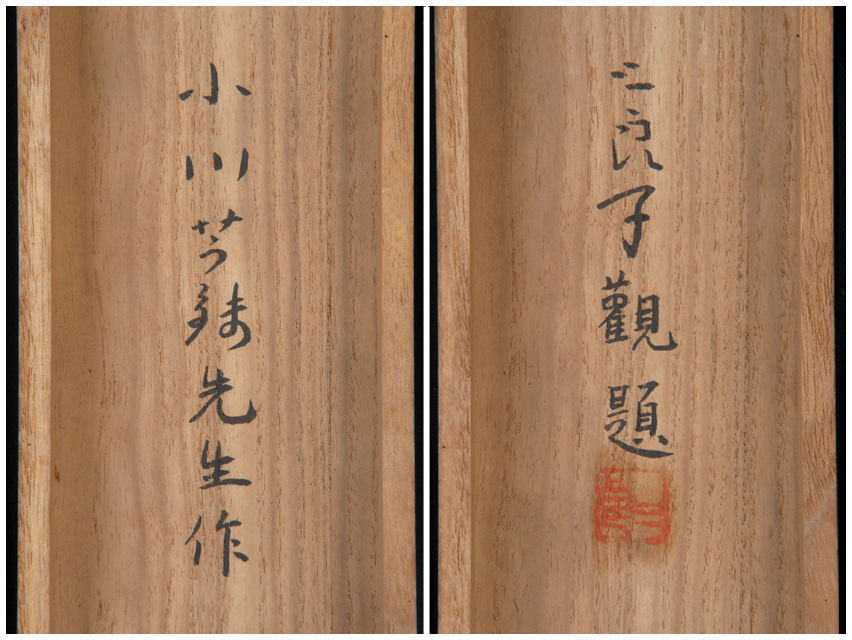 小川芋銭先生作
三良子觀題